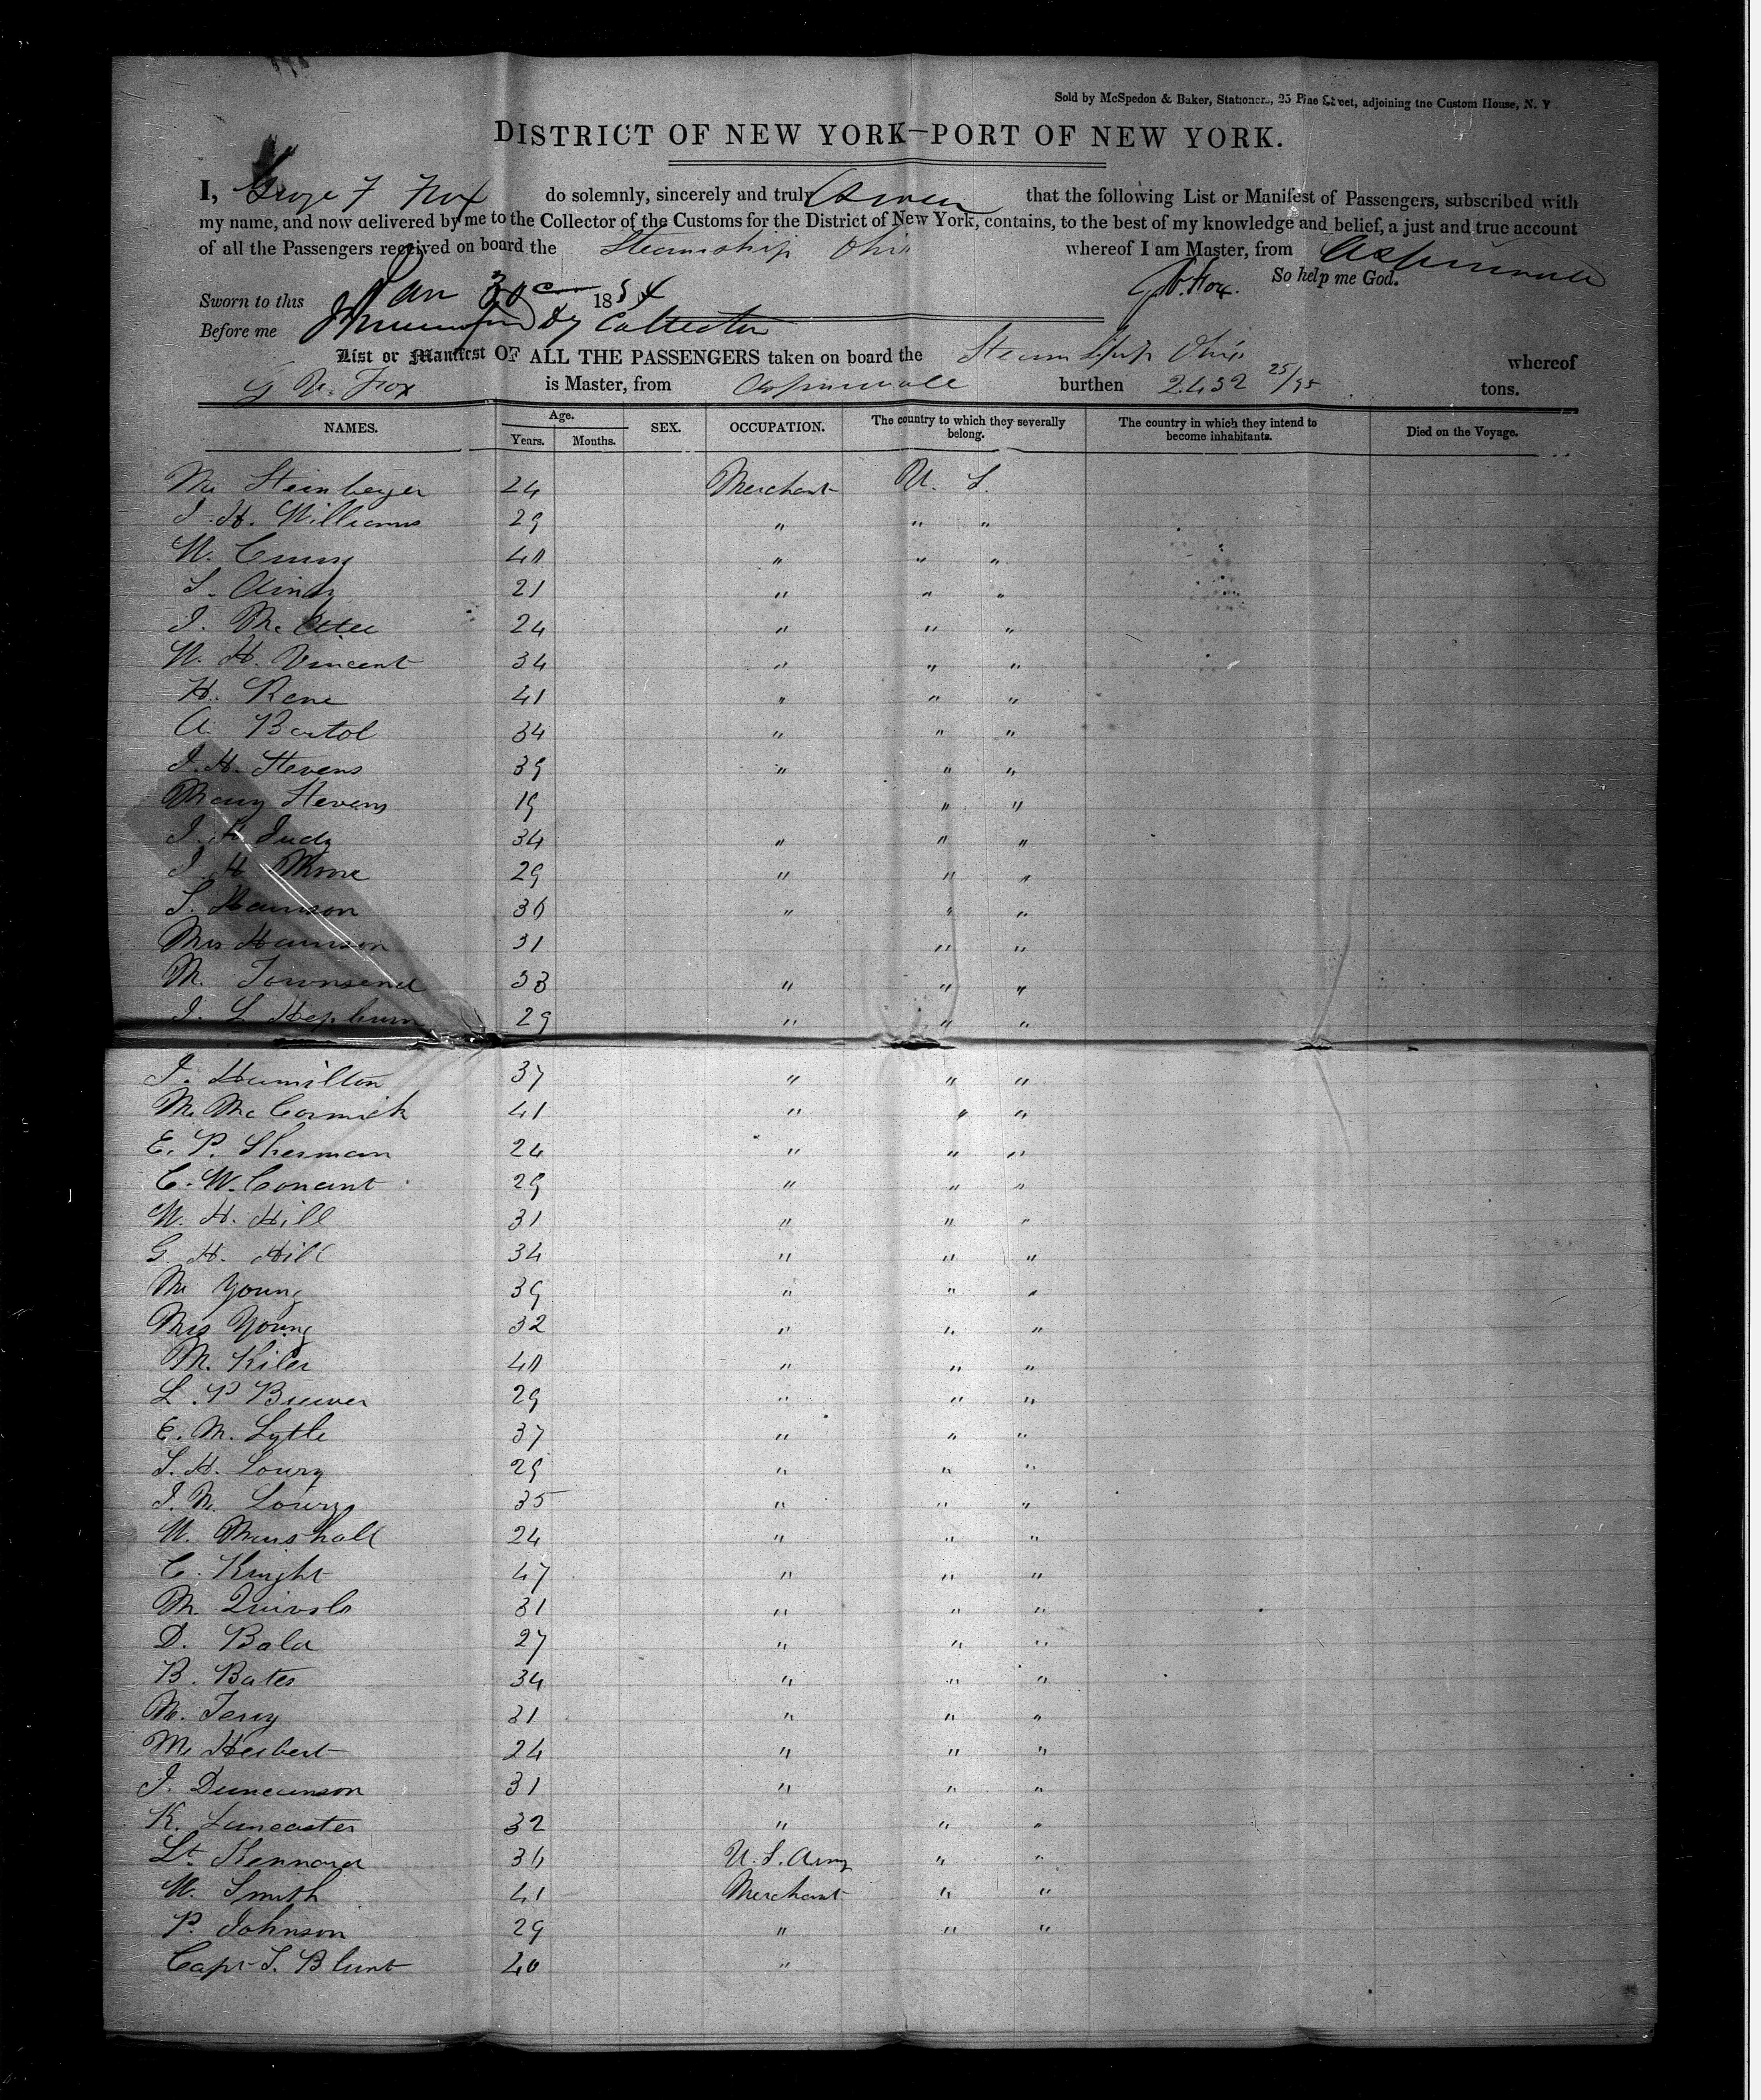 Sold by McSpedon & Baker, Stationers, 25 Pine Street, adjoining the Custom House, N. Y.
DISTRICT OF NEW YORK—PORT OF NEW YORK.
I, George F Fox do solemnly, sincerely and truly Swear that the following List or Manifest of Passengers, subscribed with
my name, and now delivered by me to the Collector of the Customs for the District of New York, contains, to the best of my knowledge and belief, a just and true account
of all the Passengers received on board the Steamship Ohio whereof I am Master, from Aspinwall
So help me God.
Sworn to this Jan 30 1854 Fox.
Before me Dy Collector
List or Manifest OF ALL THE PASSENGERS taken on board the Steam Ship Ohio whereof
G V. Fox is Master, from Aspinwall burthen 2432 25/95 tons.
NAMES. Age. Years. Months. SEX. OCCUPATION. The country to which they severally belong. The country in which they intend to become inhabitants. Died on the Voyage.
Mr Steinberger 24 Merchant U. S.
J. H. Williams 29 " " "
W. 40 " " "
S. 21 " " "
J. Mc 24 " " "
W. H. Vincent 34 " " "
H. Rene 41 " " "
A. Bartol 34 " " "
J. H. Stevens 39 " " "
Mary Stevens 19 " "
J. Judy 34 " " "
J. H. 29 " " "
S. Harrison 30 " " "
Mrs Harrison 31 " "
M. Townsend 33 " " "
J. L. Hepburn 29 " " "
J. Hamilton 37 " " "
M. McCormick 41 " " "
E. P. Sherman 24 " " "
C. W. Conant 29 " " "
W. H. Hill 31 " " "
G. H. Hill 34 " " "
Mr Young 39 " " "
Mrs Young 32 " " "
M. Kiler 40 " " "
L. P. Brewer 29 " " "
E. M. Lytle 37 " " "
S. H. Lowry 29 " " "
J. M. Lowry 35 " " "
W. Marshall 24 " " "
C. Knight 47 " " "
M. 31 " " "
D. 27 " " "
B. Bates 34 " " "
M. Terry 31 " " "
M. Herbert 24 " " "
J. Duncanson 31 " " "
K. Lancaster 32 " " "
Lt. Kennard 30 U. S. Army " "
W. Smith 41 Merchant " "
P. Johnson 29 " " "
Capt S. Blunt 40 "